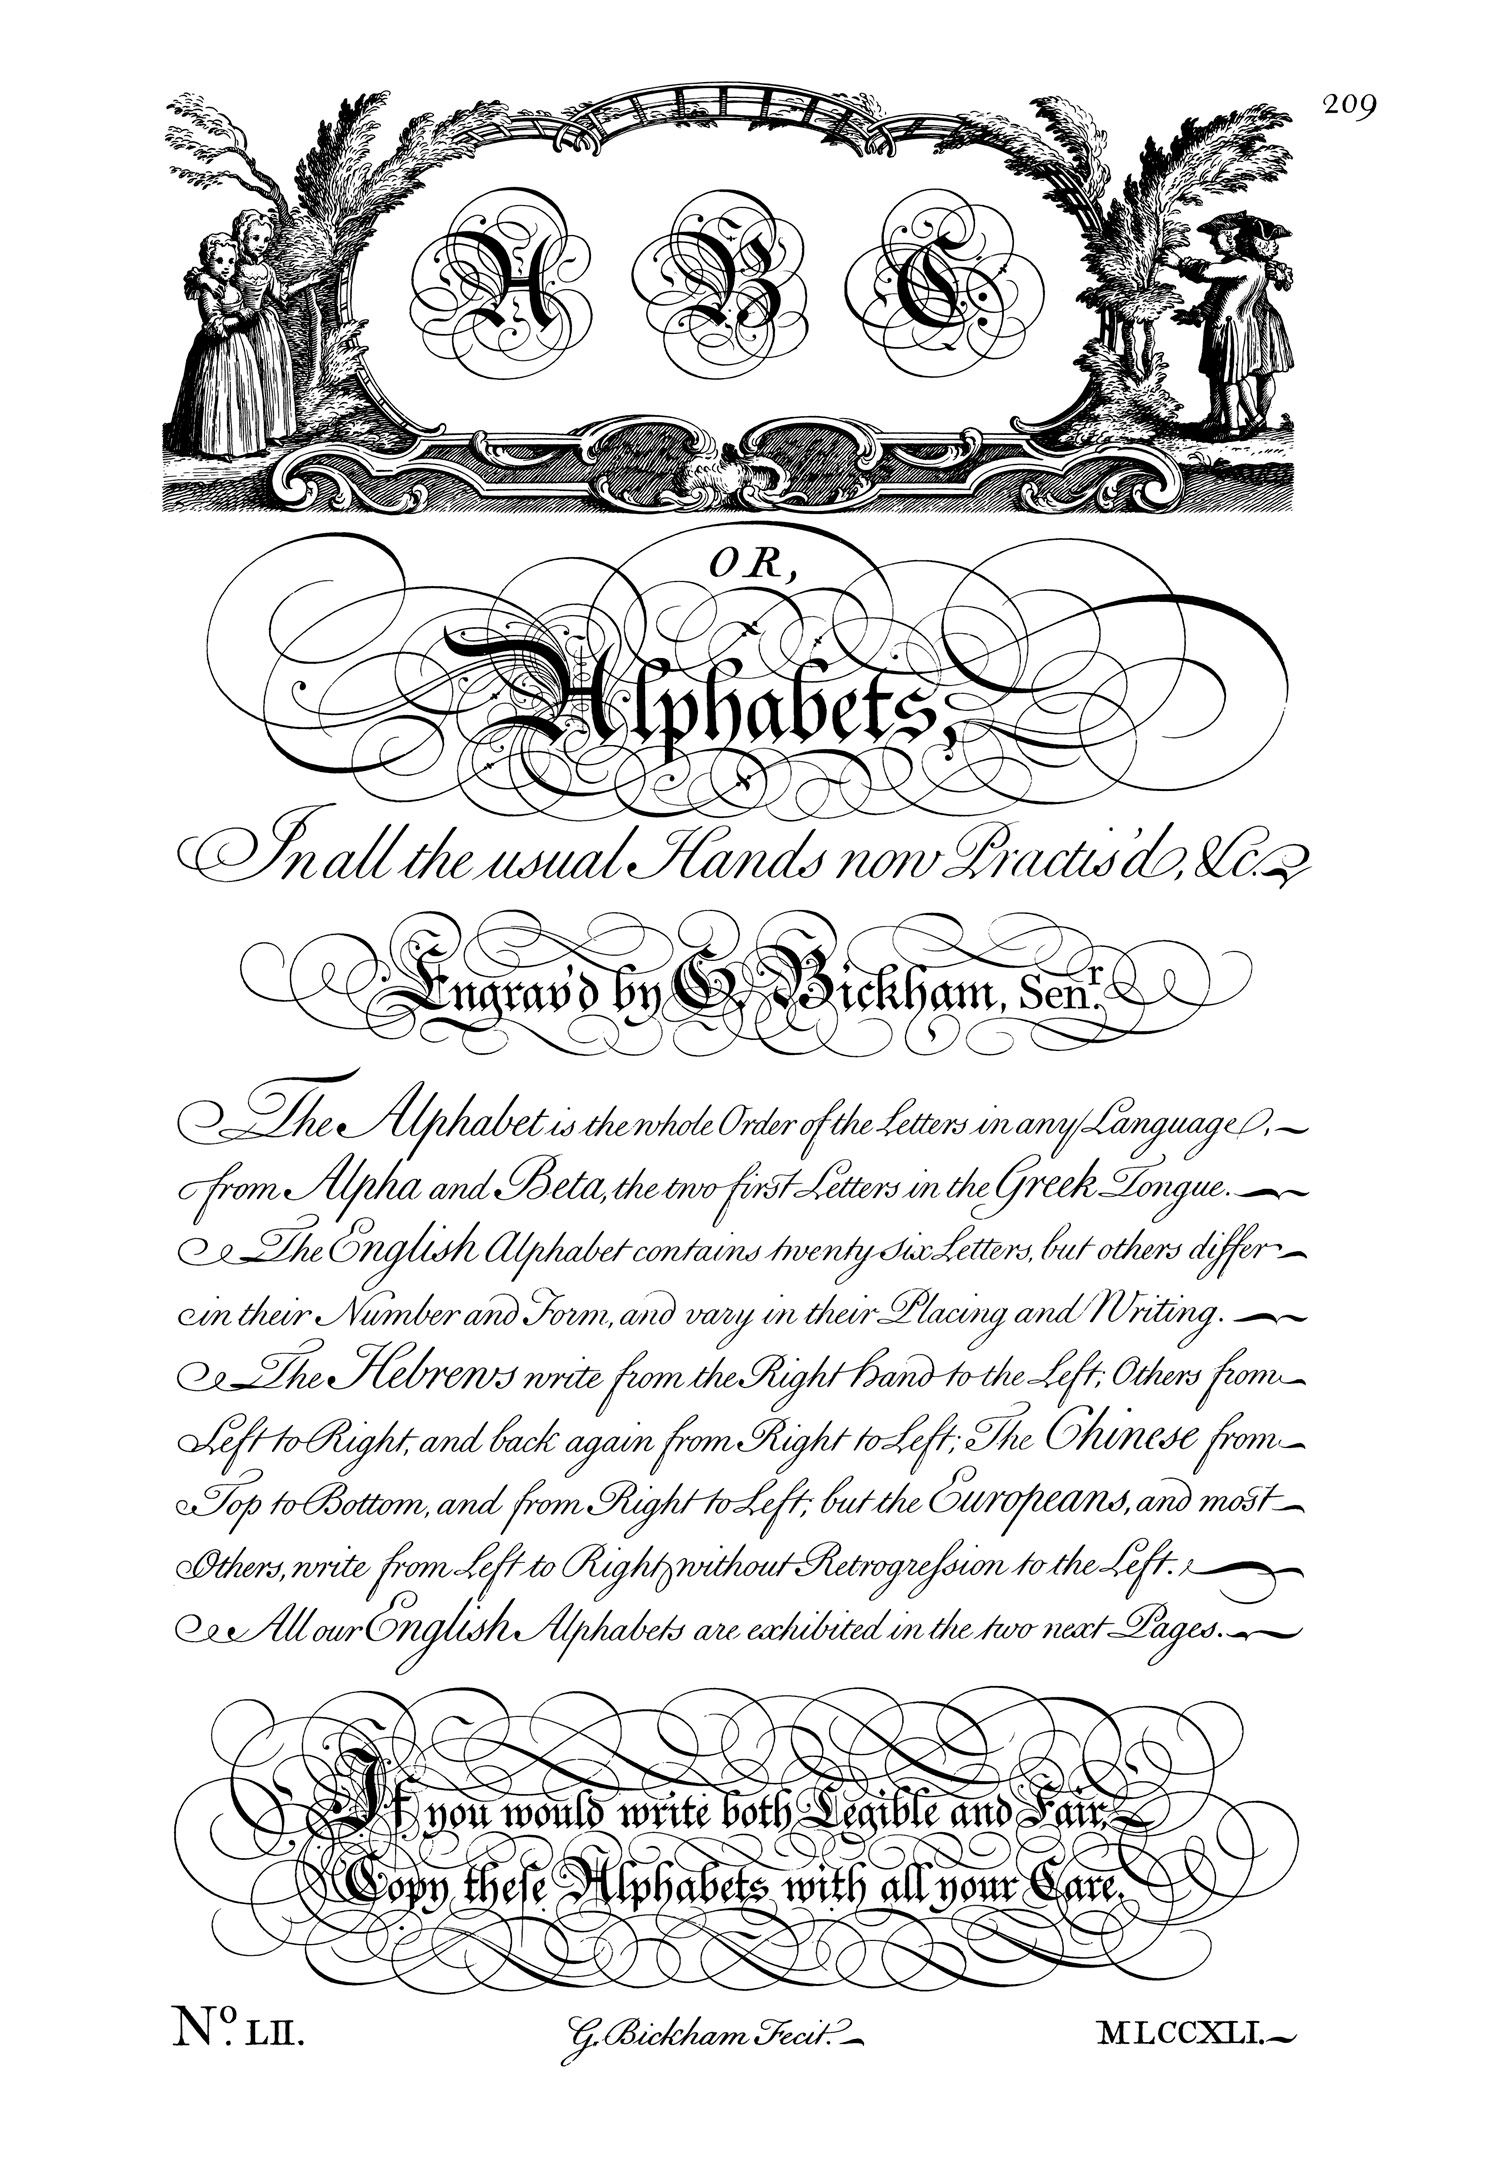 209
A B C
OR,
Alphabets,
In all the usual Hands now Practis'd, &c.
Engrav'd by G. Bickham, Senr.
The Alphabet is the whole Order of the Letters in any Language,
from Alpha and Beta, the two first Letters in the Greek Tongue.
The English Alphabet contains twenty six Letters, but others differ
in their Number and Form, and vary in their Placing and Writing.
The Hebrews write from the Right hand to the Left; Others from
Left to Right, and back again from Right to Left; The Chinese from
Top to Bottom, and from Right to Left; but the Europeans, and most
Others, write from Left to Right, without Retrogreſsion to the Left.
All our English Alphabets are exhibited in the two next Pages.
If you would write both Legible and Fair,
Copy theſe Alphabets with all your Care.
No. LII. G. Bickham Fecit. MLCCXLI.